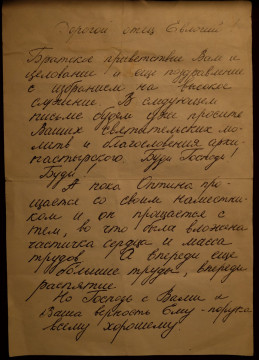 Дорогой отец Евлогий
Братское приветствие Вам и
целование и еще поздравление
с избранием на высокое
служение В следующем
письме будем уже просить
Ваших святительских мо-
литв и благословения архи-
пастырского. Буди Господи!
Буди!
А пока Оптина про-
щается со своим наместни-
ком и он прощается с
тем, во что была вложена
частичка сердца и масса
трудов. А впереди еще
большие труды, впереди
распятие
Но Господь с Вами и
Ваша верность Ему - порука
всему хорошему